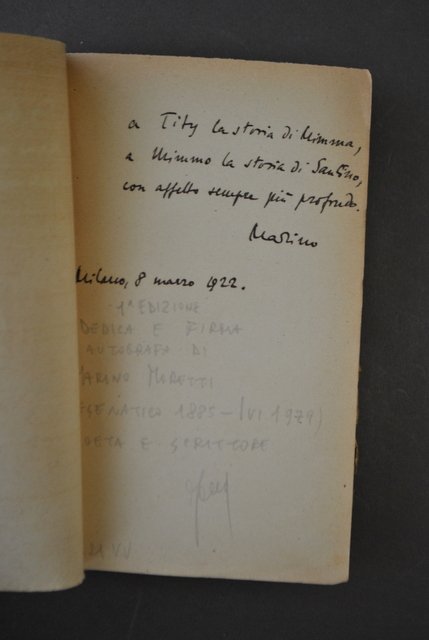 a Tity la storia di Mimma,
a Mimmo la storia di Santino,
con affetto sempre più profondo.
Marino
Milano, 8 marzo 1922.
1ª EDIZIONE
DEDICA E FIRMA
AUTOGRAFA DI
MARINO MORETTI
ESENATICO 1885 - IVI 1979)
OETA E SCRITTORE